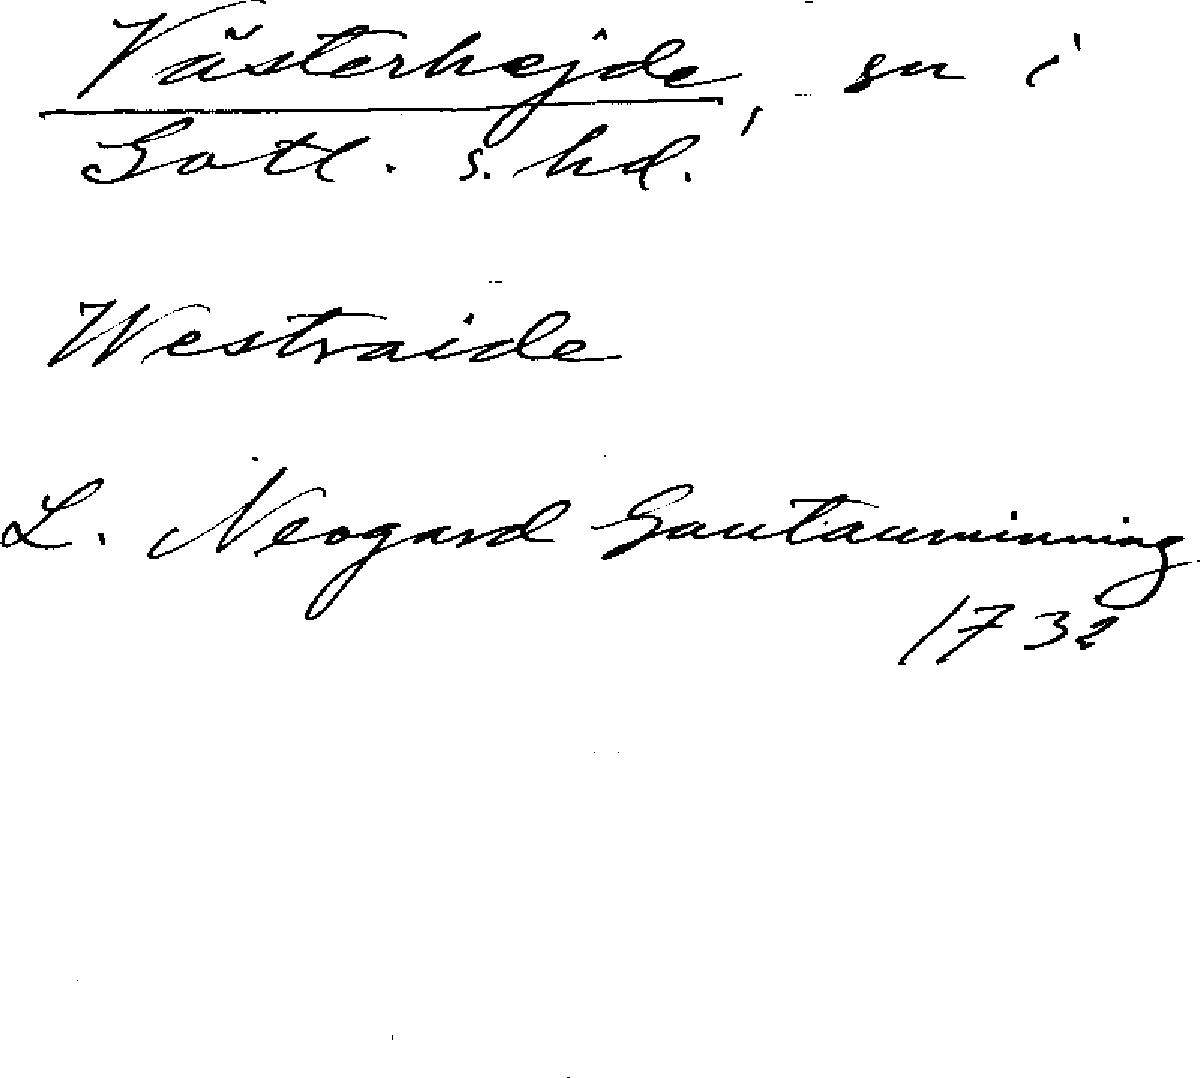 Västerhejde, sn i
Gotl. s. hd.
Westraide
L. Neogard Gautauminning
1732